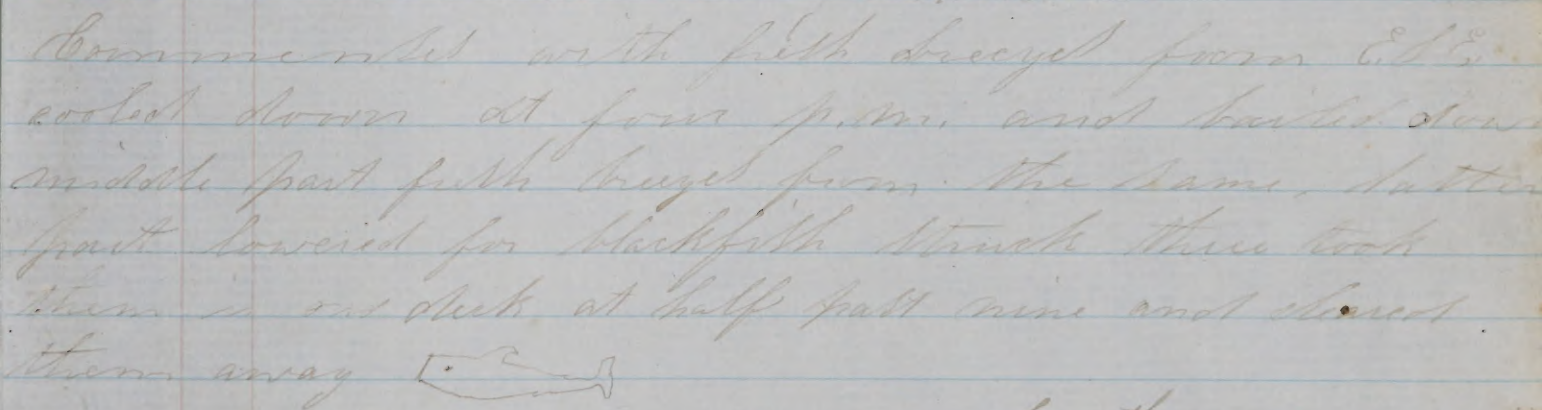 Commenses with fresh breezes from E.S.E.
cooled down at four p.m. and bailed down
middle part fresh breezes from the same, latter
part lowered for blackfish struck three took
them in on deck at half past nine and cleared
them away